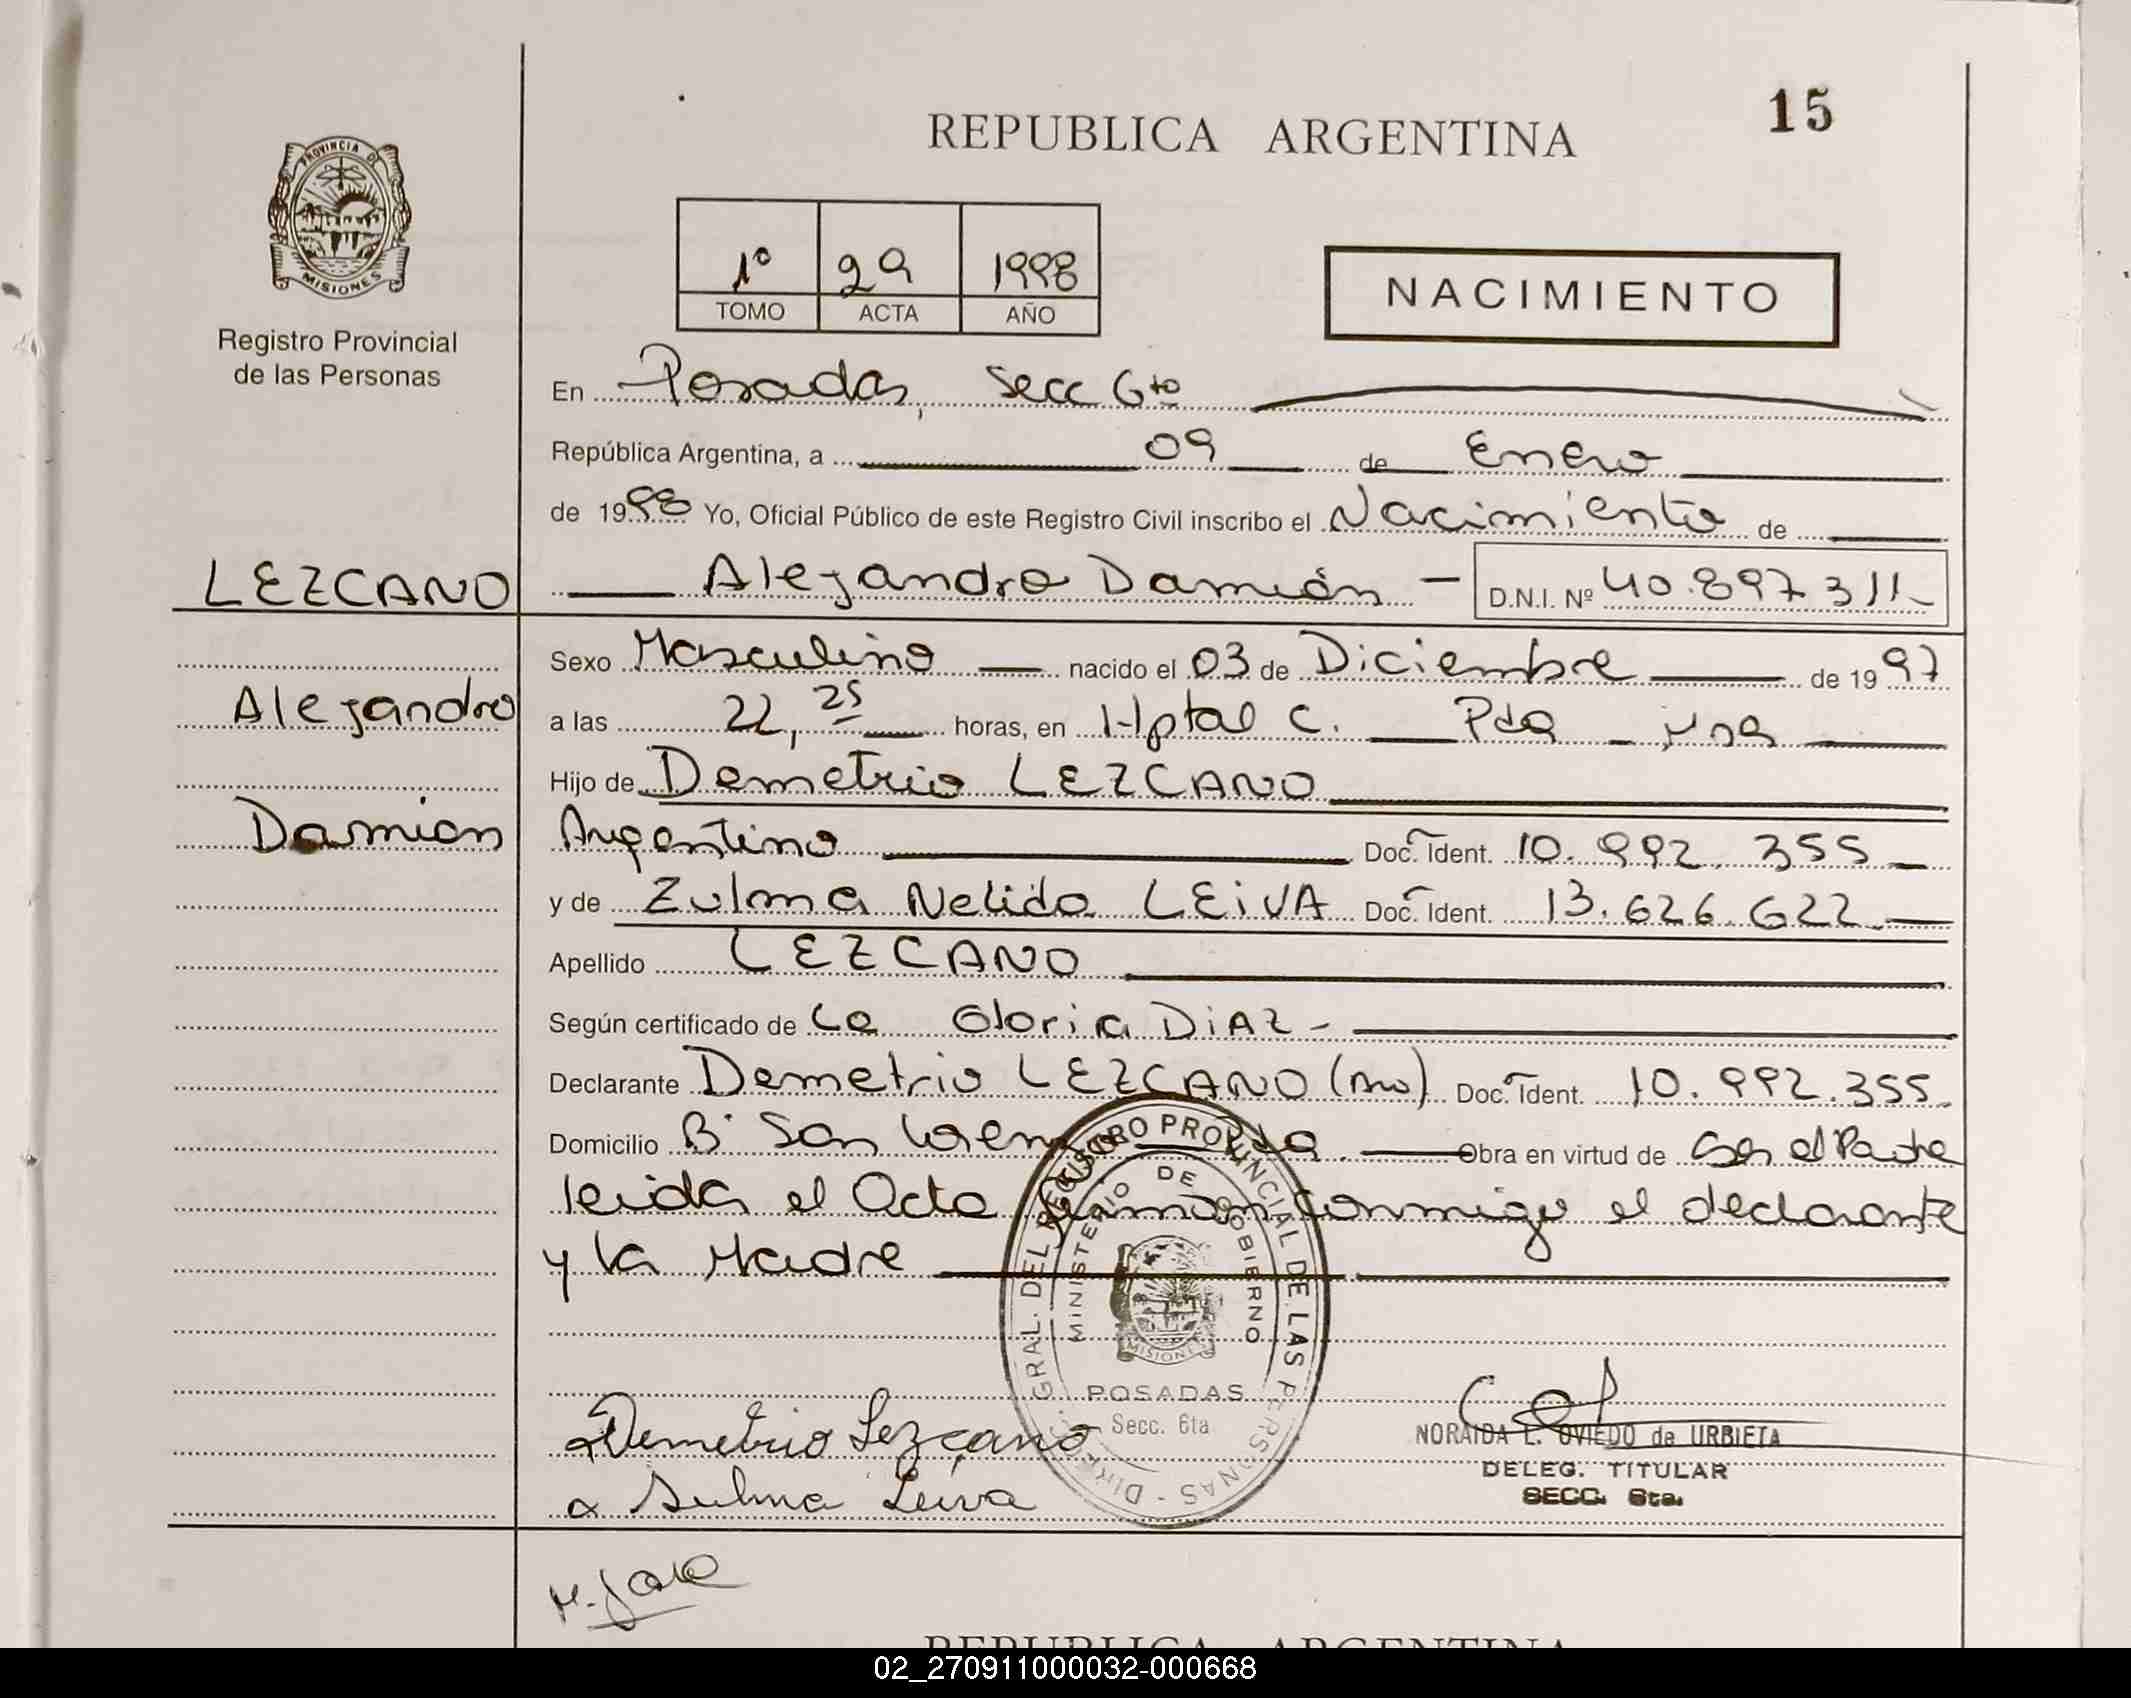 15
REPUBLICA ARGENTINA
PROVINCIA DE
MISIONES
Registro Provincial
de las Personas
1º 29 1998
TOMO ACTA AÑO
NACIMIENTO
En Posadas, Secc 6to
República Argentina, a 09 de Enero
de 1998 Yo, Oficial Público de este Registro Civil inscribo el Nacimiento de
LEZCANO Alejandro Damián — D.N.I. Nº 40.897.311-
Sexo Masculino — nacido el 03 de Diciembre de 1997
Alejandro
a las 22,25 horas, en Hptal C. Pda - Mns
Hijo de Demetrio LEZCANO
Damian
Argentino Doc. Ident. 10.992.355
y de Zulma Nelida LEiVA Doc. Ident. 13.626.622
Apellido LEZCANO
Según certificado de La Gloria DiAZ -
Declarante Demetrio LEZCANO Doc. Ident. 10.992.355
Domicilio Bº San Lorenzo Pda. Obra en virtud de Ser el Padre
leida el Acta firman conmigo el declarante
y la Madre
DIREC. GRAL. DEL REGISTRO PROVINCIAL DE LAS PERSONAS
MINISTERIO DE GOBIERNO
MISIONES
POSADAS
Secc. 6ta
Demetrio Lezcano
Sulma Leiva
NORAIDA L. OVIEDO de URBIETA
DELEG. TITULAR
SECC. 6ta.
REPUBLICA ARGENTINA
02_270911000032-000668